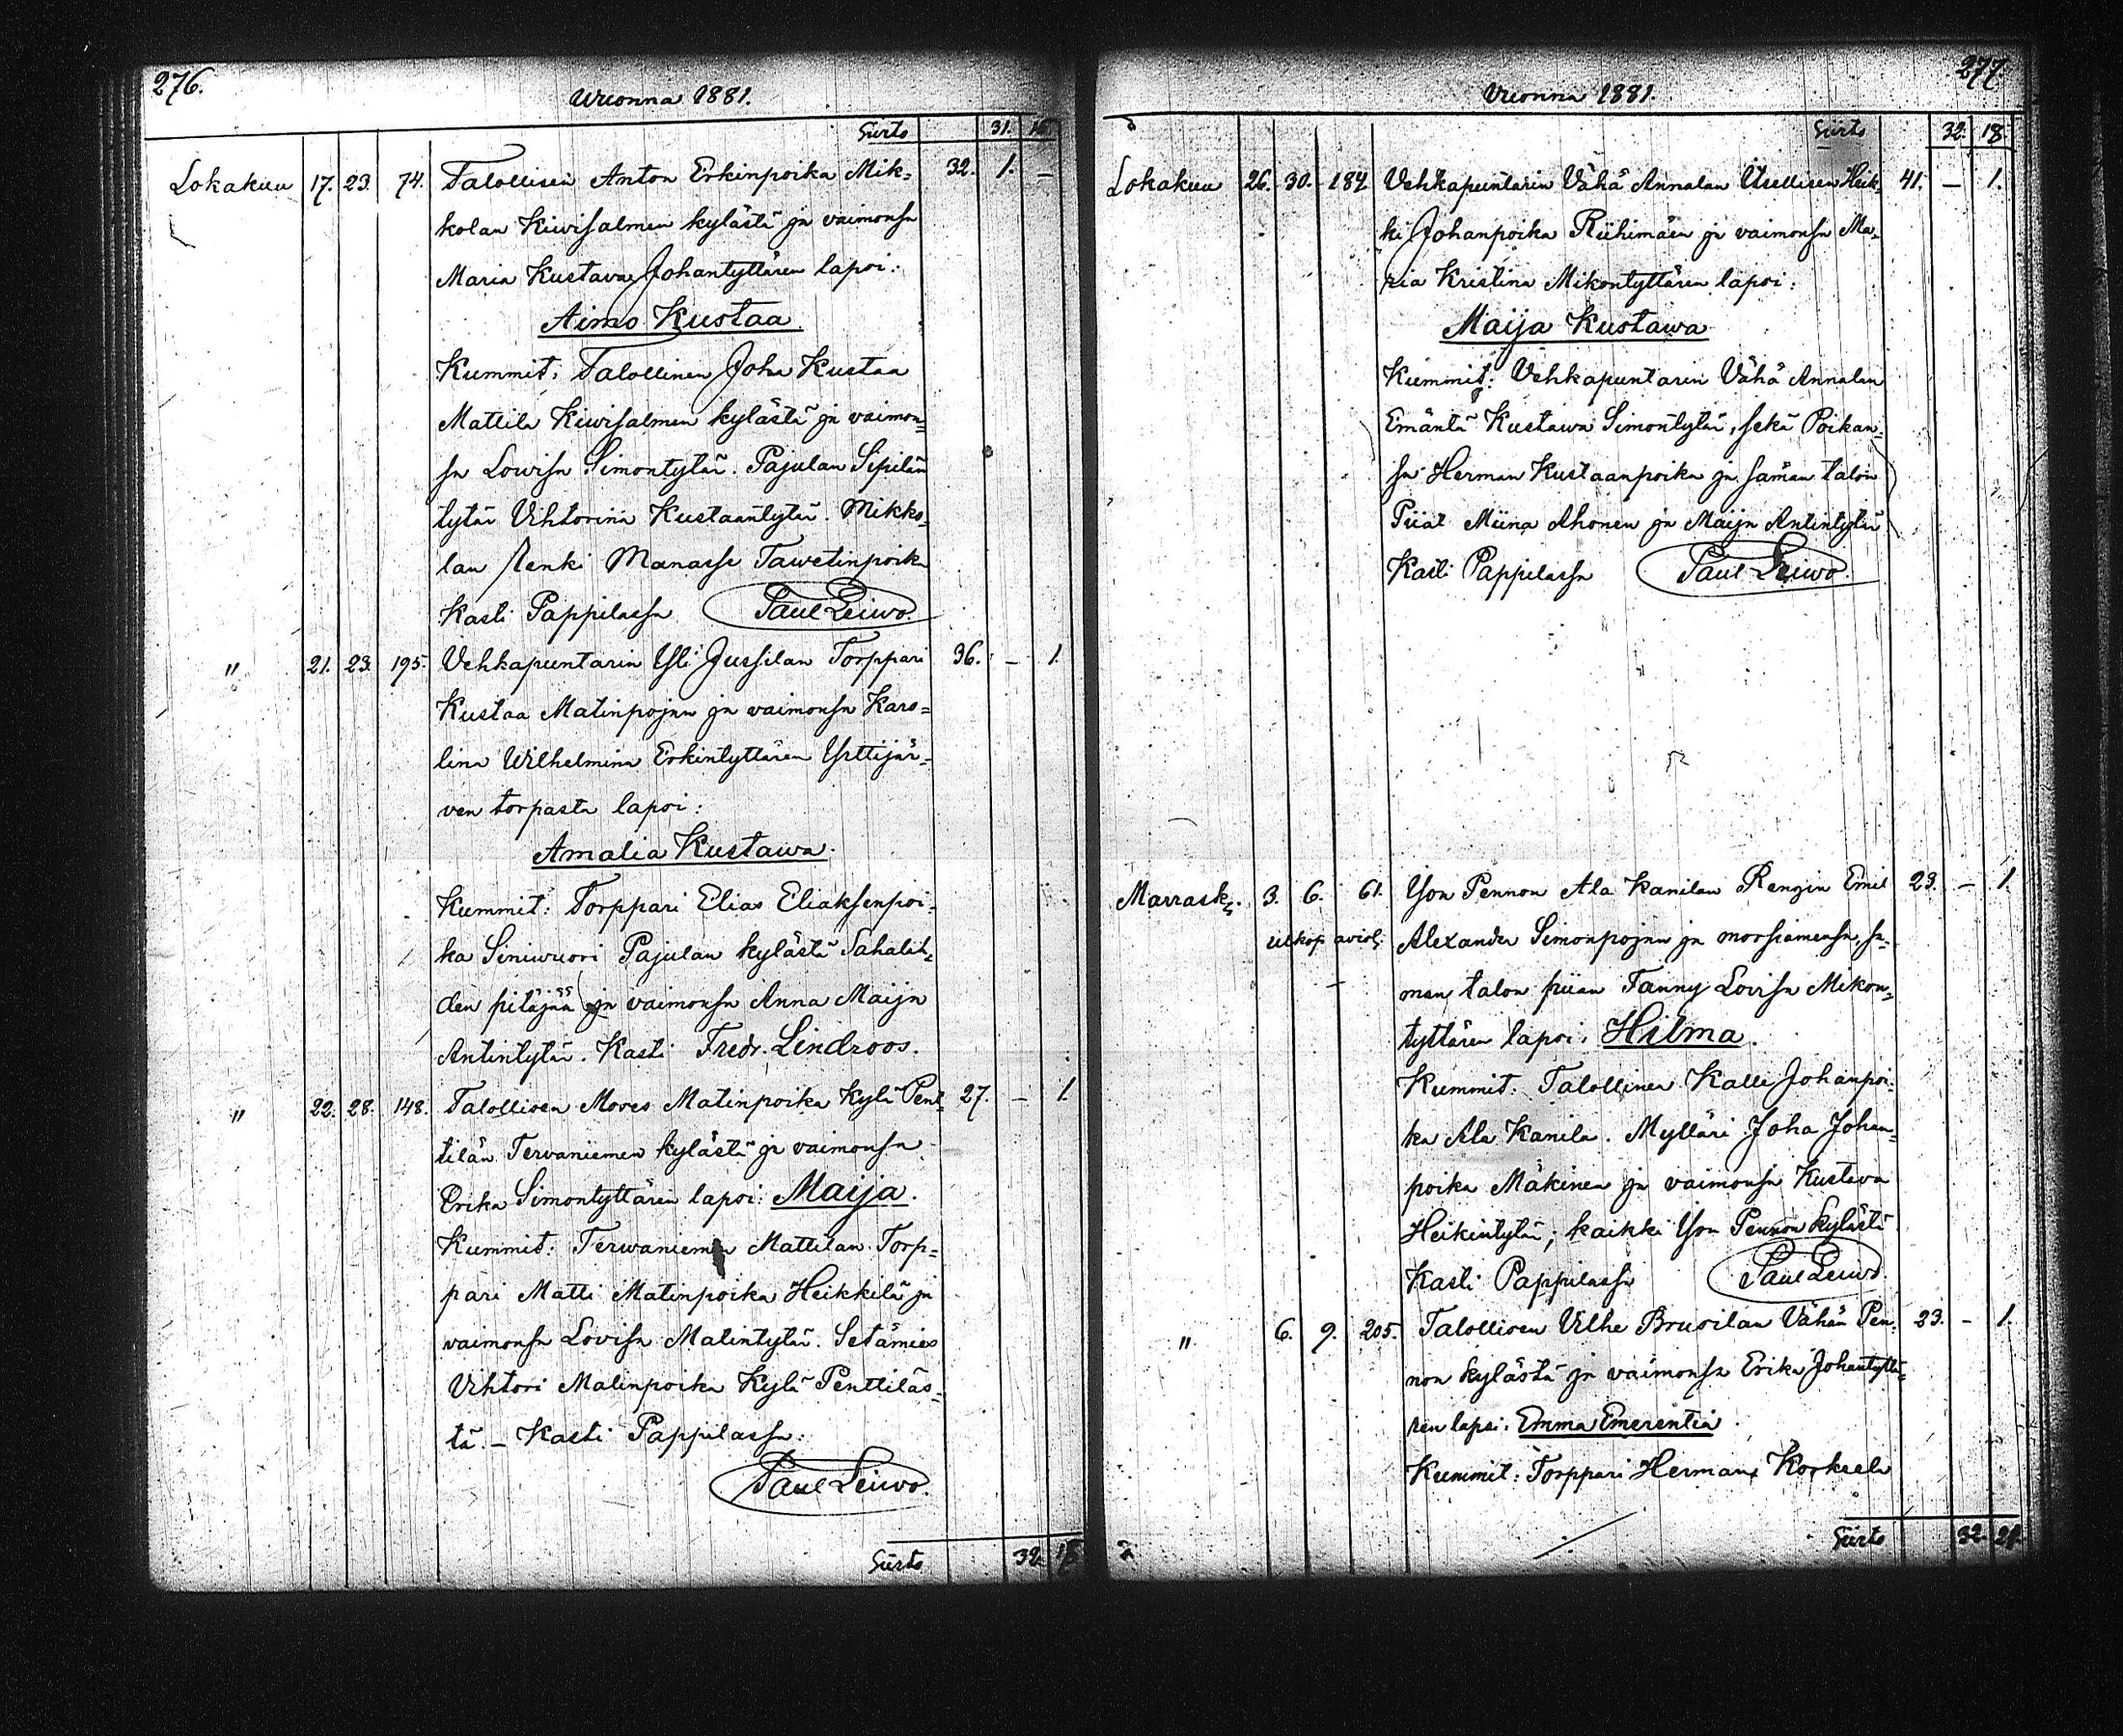 276.
Wuonna 1881.
Siirto 31. 16
Lokakuu 17. 23. 74. Talollisen Anton Erkinpoika Mik- 32. 1. –
kolan Kiwisalmen kylästä ja vaimonsa
Maria Kustava Johantyttären lapsi:
Aimo Kustaa.
Kummit: Talollinen Joha Kustaa
Mattila Kiwisalmen kylästä ja vaimon=
sa Lowisa Simontytär. Pajulan Sipilän
tytär Vihtorina Kustaantytär. Mikko=
lan Renki Manasse Tawetinpoika
Kasti Pappilassa Paul Leiwo.
" 21. 23. 195. Vehkapuntarin Yli Jussilan Torppari 36. – 1.
Kustaa Matinpojan ja vaimonsa Karo=
lina Wilhelmina Erkintyttären Yrttijär=
ven torpasta lapsi:
Amalia Kustawa.
Kummit: Torppari Elias Eliaksenpoi=
ka Siniwuori Pajulan kylästä Sahalah=
den pitäjää ja vaimonsa Anna Maija
Antintytär. Kasti Fredr. Lindroos.
" 22. 28. 148. Talollisen Moses Matinpoika Kylä Pent= 27. – 1
tilän Tervaniemen kylästä ja vaimonsa
Erika Simontyttären lapsi: Maija.
Kummit: Terwaniemen Mattilan Torp=
pari Matti Matinpoika Heikkilä ja
vaimonsa Lovisa Matintytär. Setämies
Vihtori Matinpoika Kylä Penttiläs=
tä. – Kasti Pappilassa.
Paul Leiwo.
Siirto 32. 18
277.
Vuonna 1881.
Siirto 32. 18.
Lokakuu 26. 30. 184 Vehkapuntarin Vähä Annalan Itsellisen Heik= 41. – 1.
ki Johanpoika Riihimäen ja vaimonsa Ma=
ria Kristina Mikontyttären lapsi:
Maija Kustawa.
Kummit: Vehkapuntarin Vähä Annalan
Emäntä Kustawa Simontytär, sekä Poikan=
sa Herman Kustaanpoika ja saman talon
Piiat Miina Ahonen ja Maija Antintytär
Kasti Pappilassa Paul Leiwo.
Marrask. 3. 6. 61. Ison Pennon Ala Kanilan Rengin Emil 23. – 1.
ulkop. aviol. Alexander Simonpojan ja morsiamensa, sa=
man talon piian Fanny Lovisa Mikon=
tyttären lapsi: Hilma.
Kummit: Talollinen Kalle Johanpoi=
ka Ala Kanila. Mylläri Joha Johan=
poika Mäkinen ja vaimonsa Kustava
Heikintytär; kaikki Ison Pennon kylästä
Kasti Pappilassa Paul Leiwo.
" 6. 9. 205. Talollisen Vilhe Brusilan Vähän Pen= 23. – 1.
non kylästä ja vaimonsa Erika Johantyttä=
ren lapsi: Emma Emerentia.
Kummit: Torppari Herman Korkeela
Siirto 32. 21.